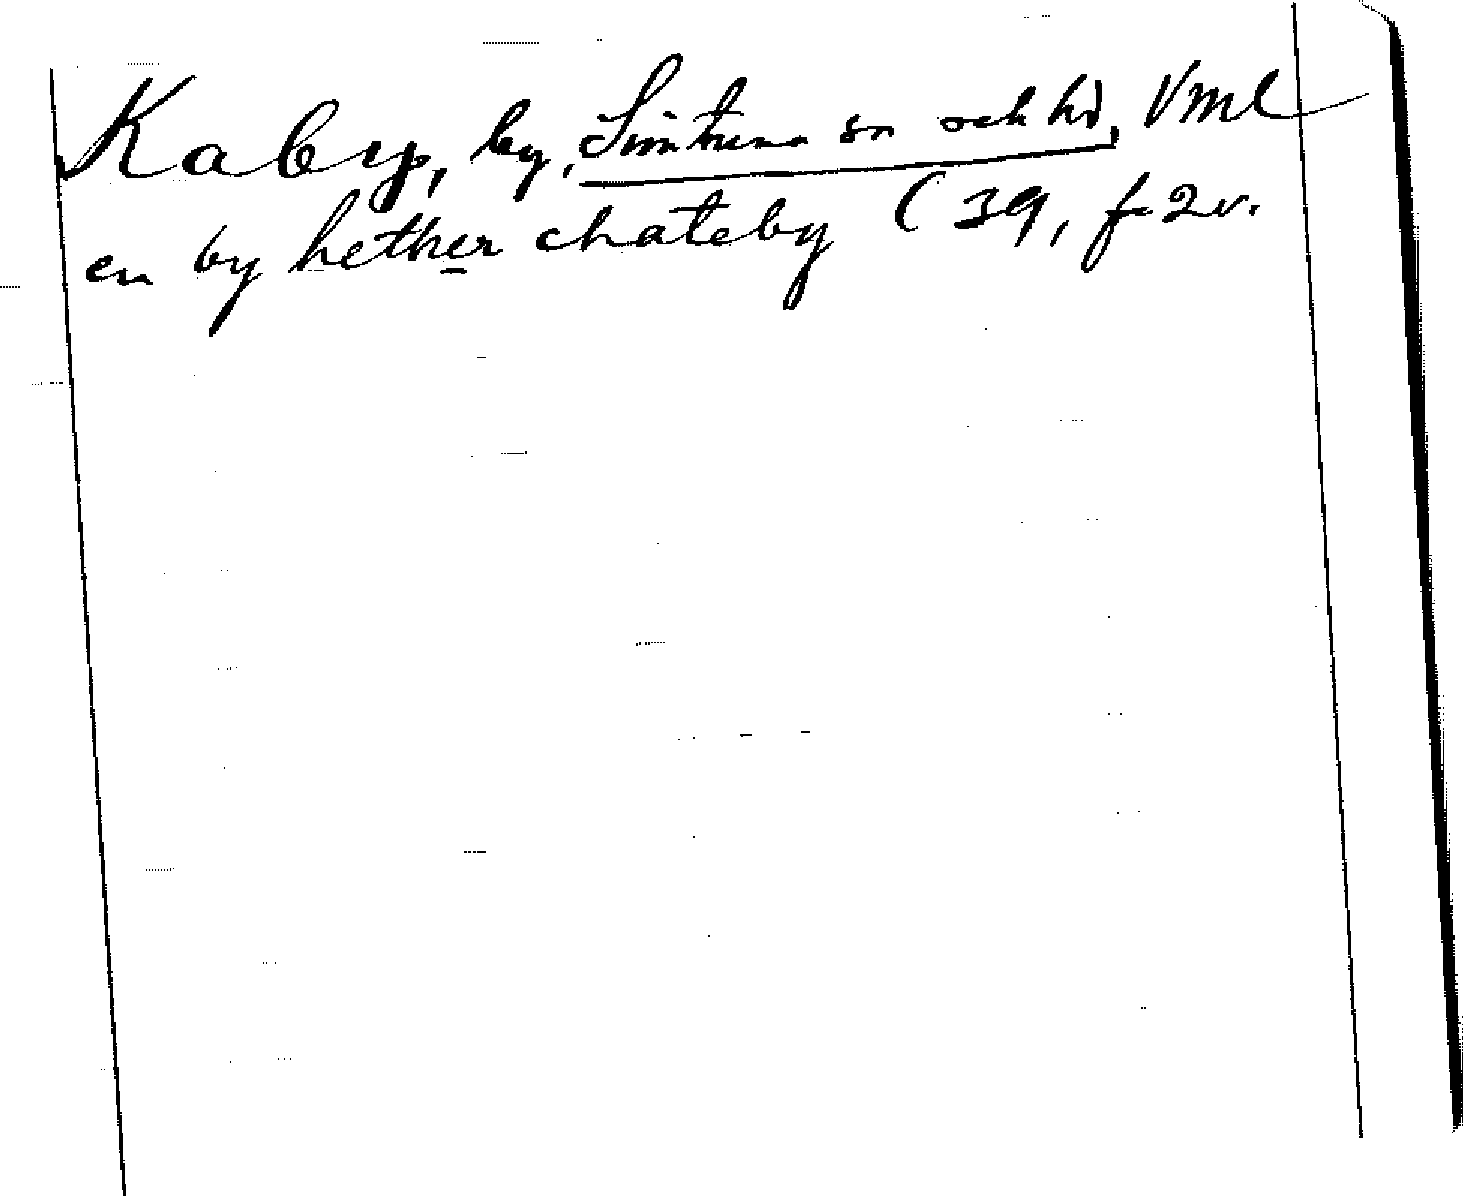 Kaby, by, Simtuna sn och hd, Vml
en by hether chateby (39, f. 2v.